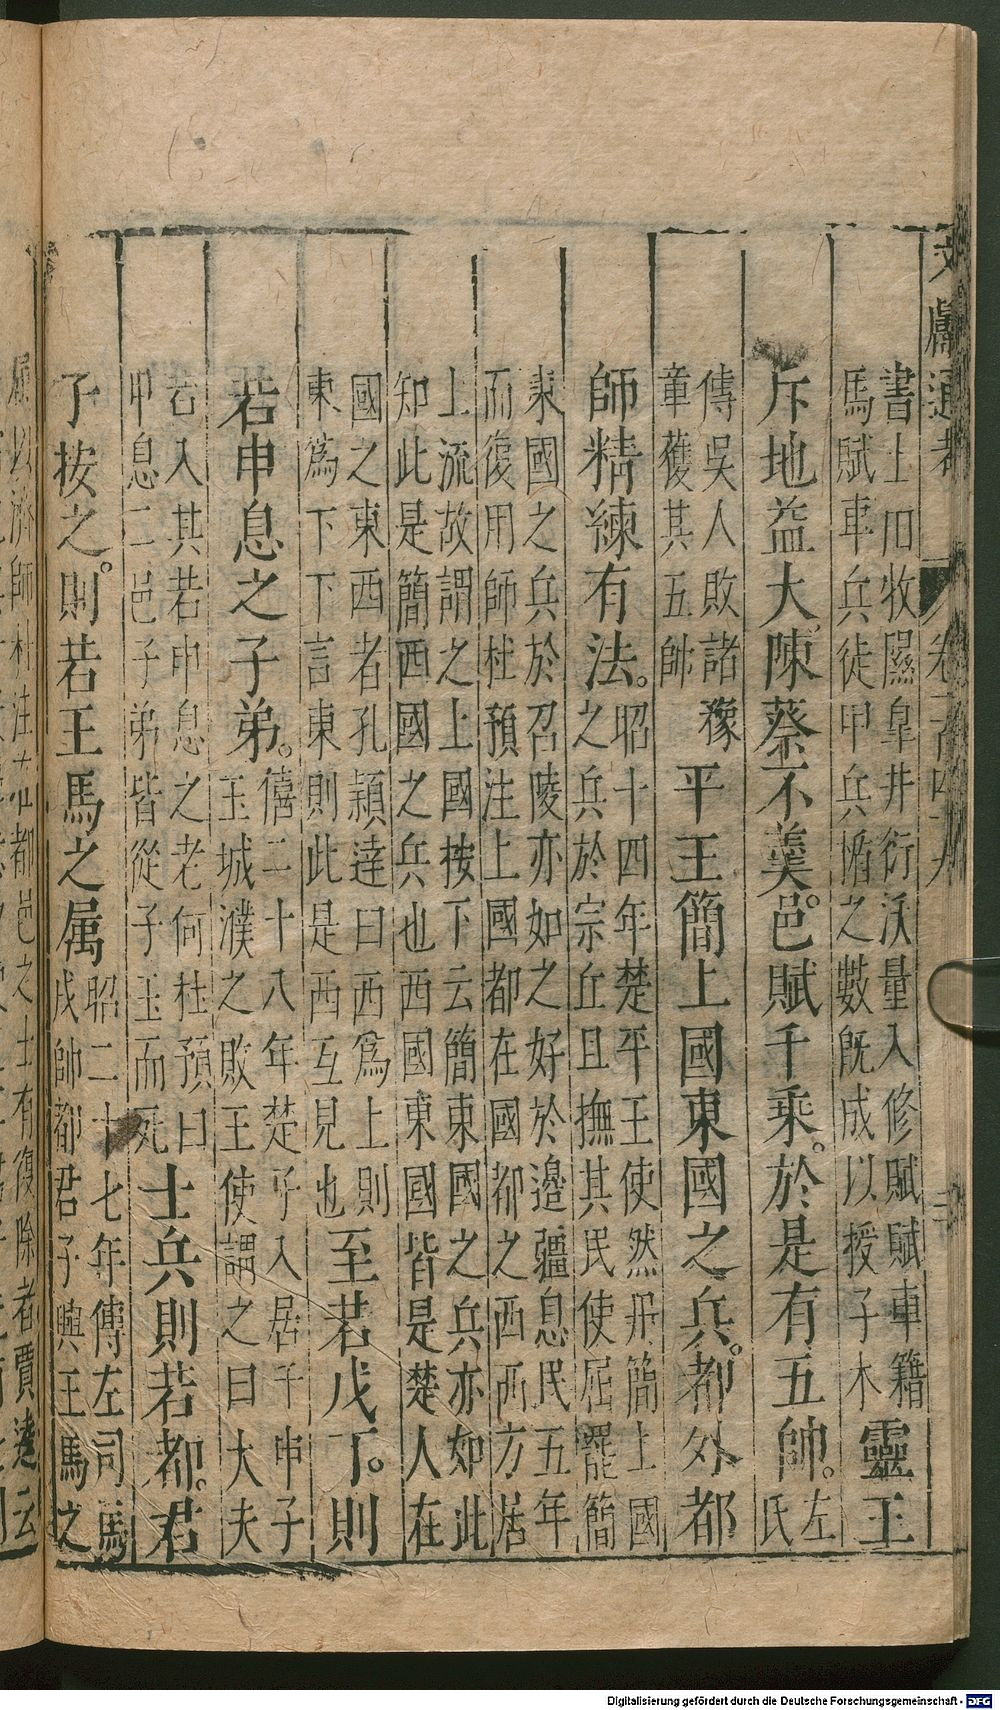 文獻通考 卷一百四十九 二
書土田牧隰皐井衍沃量入修賦賦車籍
馬賦車兵徒甲兵楯之數既成以授子木
靈王
斥地益大陳蔡不羹。邑賦千乘。於是有五帥。
左
氏
傳吳人敗諸豫
章獲其五帥
平王簡上國東國之兵。都外都
師精練有法。
昭十四年楚平王使然丹簡上國
之兵於宗丘且撫其民使屈罷簡
東國之兵於召陵亦如之好於邊疆息民五年
而復用師杜預注上國都在國都之西西方居
上流故謂之上國按下云簡東國之兵亦如此
知此是簡西國之兵也西國東國皆是楚人在
國之東西者孔穎達曰西爲上則
東爲下下言東則此是西互見也
至若戊丁。則
若申息之子弟。
僖二十八年楚子入居于申子
玉城濮之敗王使謂之曰大夫
若入其若申息之老何杜預曰
申息二邑子弟皆從子玉而死
士兵則若都。君
子按之。則若王馬之属
昭二十七年傳左司馬
戌帥都君子與王馬之
屬以濟師杜注在都邑之士有復除者賈逵云
Digitalisierung gefördert durch die Deutsche Forschungsgemeinschaft - DFG